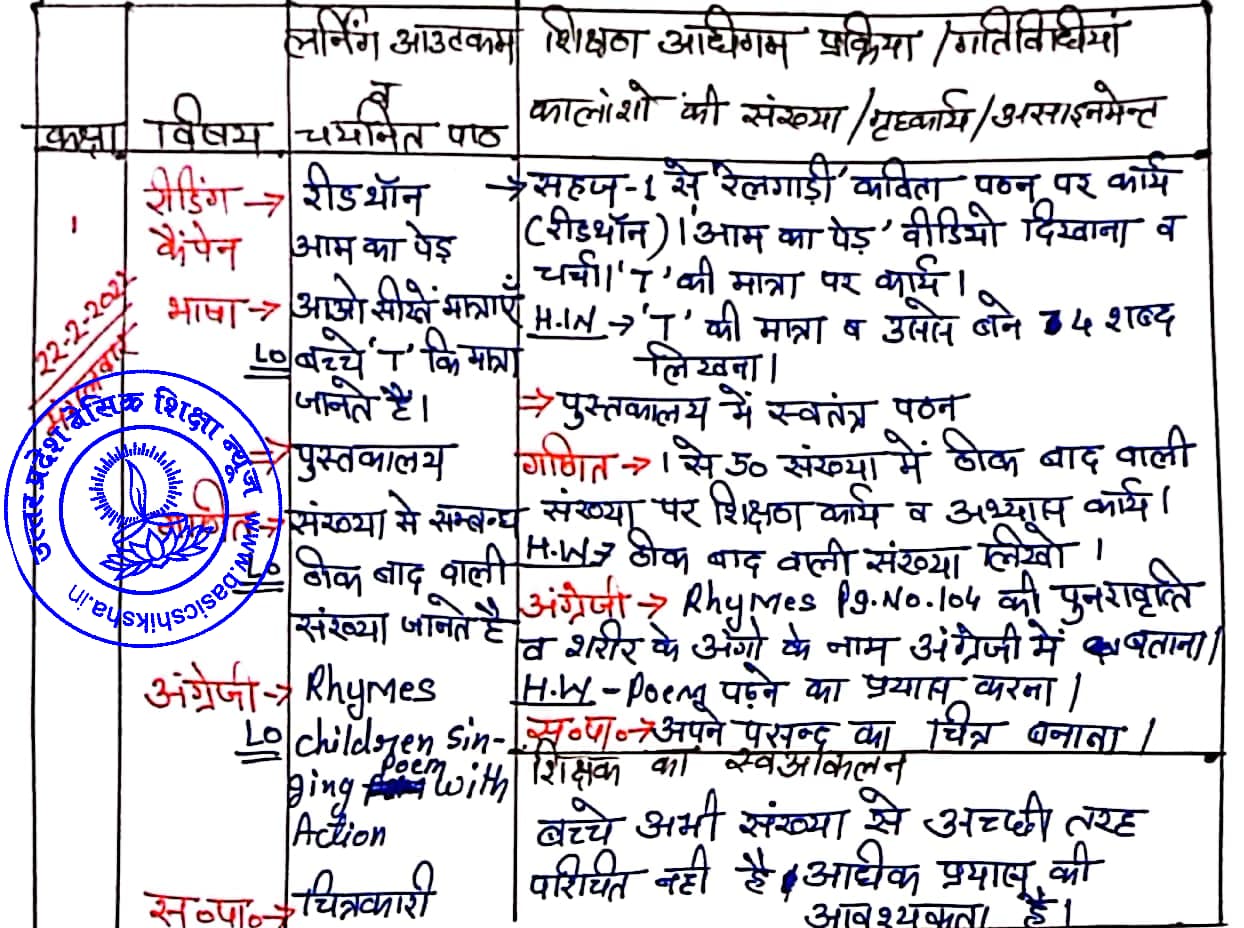 लर्निंग आउटकम
व
चयनित पाठ
कक्षा
विषय
शिक्षण अधिगम प्रक्रिया /गतिविधियां
कालांशो की संख्या /गृहकार्य/असाइनमेन्ट
1
22-2-202
मंगलवार
रीडिंग →
कैंपेन
रीडथॉन
आम का पेड़
भाषा →
आओ सीखें मात्राएँ
LO
बच्चे 'ा' कि मात्रा
जानते है।
⇒ पुस्तकालय
→
संख्या से सम्बन्ध
LO
ठीक बाद वाली
संख्या जानते है
अंग्रेजी →
Rhymes
LO
children sin-
ging poem with
Action
स०पा०→
चित्रकारी
→ सहज-1 से 'रेलगाड़ी' कविता पठन पर कार्य
(रीडथॉन)। 'आम का पेड़' वीडियो दिखाना व
चर्चा। 'ा' की मात्रा पर कार्य।
H.W → 'ा' की मात्रा व उससे बने 4 शब्द
लिखना।
⇒ पुस्तकालय में स्वतंत्र पठन
गणित → 1 से 50 संख्या में ठीक बाद वाली
संख्या पर शिक्षण कार्य व अभ्यास कार्य।
H.W → ठीक बाद वाली संख्या लिखो ।
अंग्रेजी → Rhymes Pg.No.104 की पुनरावृत्ति
व शरीर के अंगो के नाम अंग्रेजी में बताना।
H.W - Poem पढ़ने का प्रयास करना।
स०पा०→ अपने पसन्द का चित्र बनाना।
शिक्षक का स्वआंकलन
बच्चे अभी संख्या से अच्छी तरह
परिचित नही है, अधिक प्रयास की
आवश्यकता है।
उत्तर प्रदेश बेसिक शिक्षा न्यूज
www.basicshiksha.in